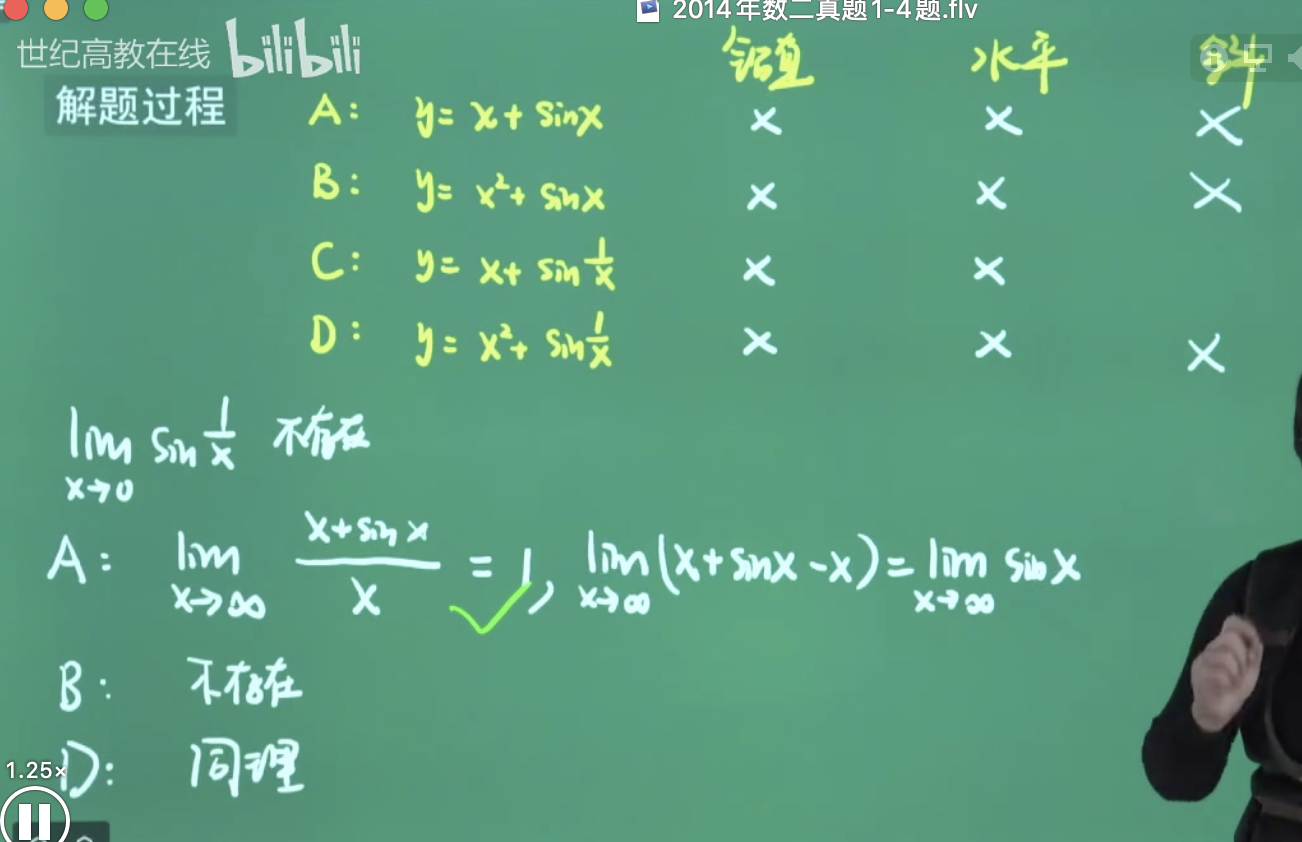 2014年数二真题1-4题.flv
世纪高教在线 bilibili
铅直 水平 斜
解题过程
A: y= x+ sinx × × ×
B: y= x²+ sinx × × ×
C: y= x+ sin 1/x × ×
D: y= x²+ sin 1/x × × ×
lim x→0 sin 1/x 不存在
A: lim x→∞ (x+sinx)/x = 1, lim x→∞ (x+sinx-x)= lim x→∞ sinx
B: 不存在
D: 同理
1.25×